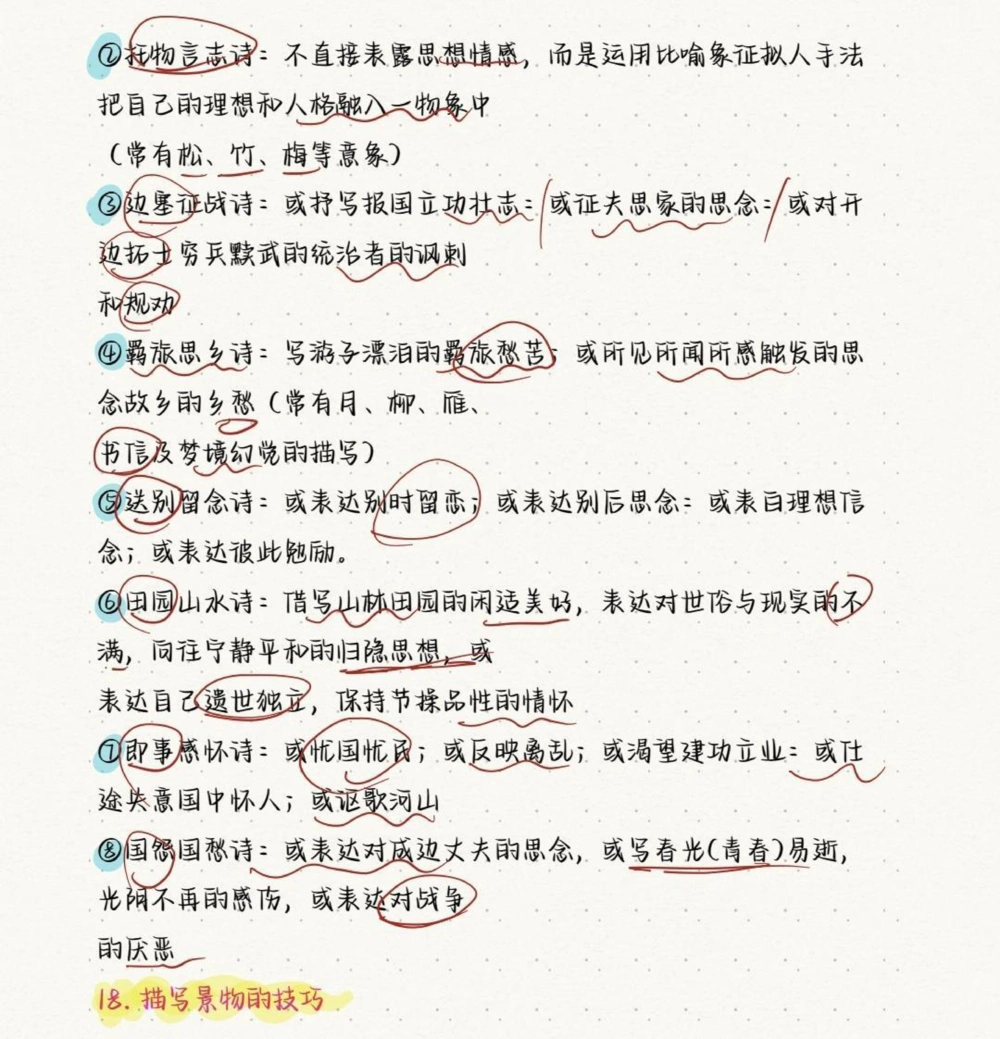 ②托物言志诗：不直接表露思想情感，而是运用比喻象征拟人手法
把自己的理想和人格融入一物象中
（常有松、竹、梅等意象）
③边塞征战诗：或抒写报国立功壮志：或征夫思家的思念：或对开
边拓土穷兵黩武的统治者的讽刺
和规劝
④羁旅思乡诗：写游子漂泊的羁旅愁苦；或所见所闻所感触发的思
念故乡的乡愁（常有月、柳、雁、
书信及梦境幻觉的描写）
⑤送别留念诗：或表达别时留恋；或表达别后思念：或表白理想信
念；或表达彼此勉励。
⑥田园山水诗：借写山林田园的闲适美好，表达对世俗与现实的不
满，向往宁静平和的归隐思想，或
表达自己遗世独立，保持节操品性的情怀
⑦即事感怀诗：或忧国忧民；或反映离乱；或渴望建功立业：或仕
途失意国中怀人；或讴歌河山
⑧国怨国愁诗：或表达对戍边丈夫的思念，或写春光（青春）易逝，
光阴不再的感伤，或表达对战争
的厌恶
18.描写景物的技巧